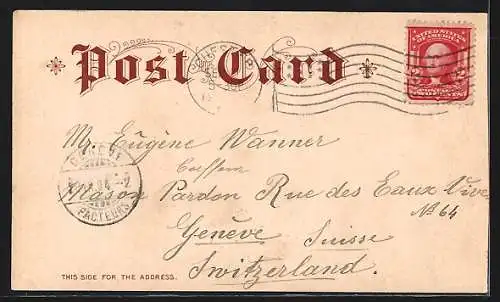 Post Card
UNITED STATES
OF AMERICA
Mr. Eugène Wanner
Coiffeur
Maison Pardon Rue des Eaux Vive
No 64
Genève Suisse
Switzerland.
FACTEURS
THIS SIDE FOR THE ADDRESS.